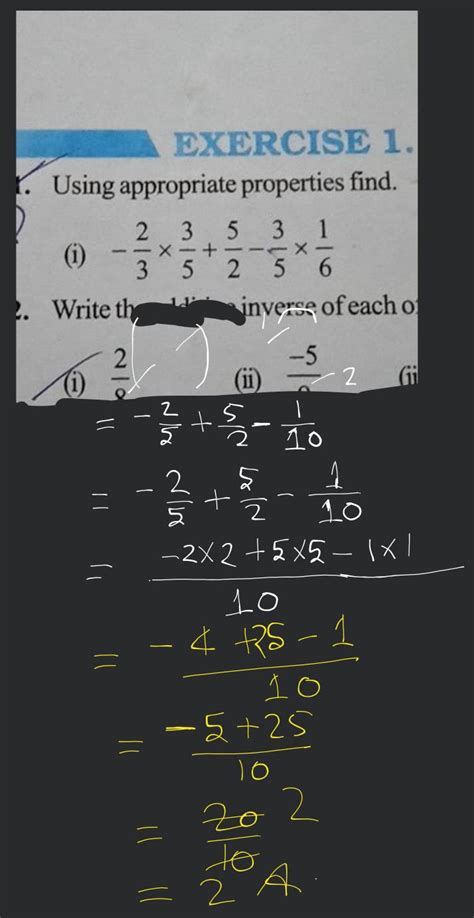 EXERCISE 1.
1. Using appropriate properties find.
(i) -2/3 × 3/5 + 5/2 - 3/5 × 1/6
2. Write th inverse of each o
(i) 2 (ii) -5 2 (ii
= -2/5 + 5/2 - 1/10
= -2/5 + 5/2 - 1/10
= -2×2 + 5×5 - 1×1 / 10
= -4 + 25 - 1 / 10
= -5 + 25 / 10
= 20/10 2
= 2 A.